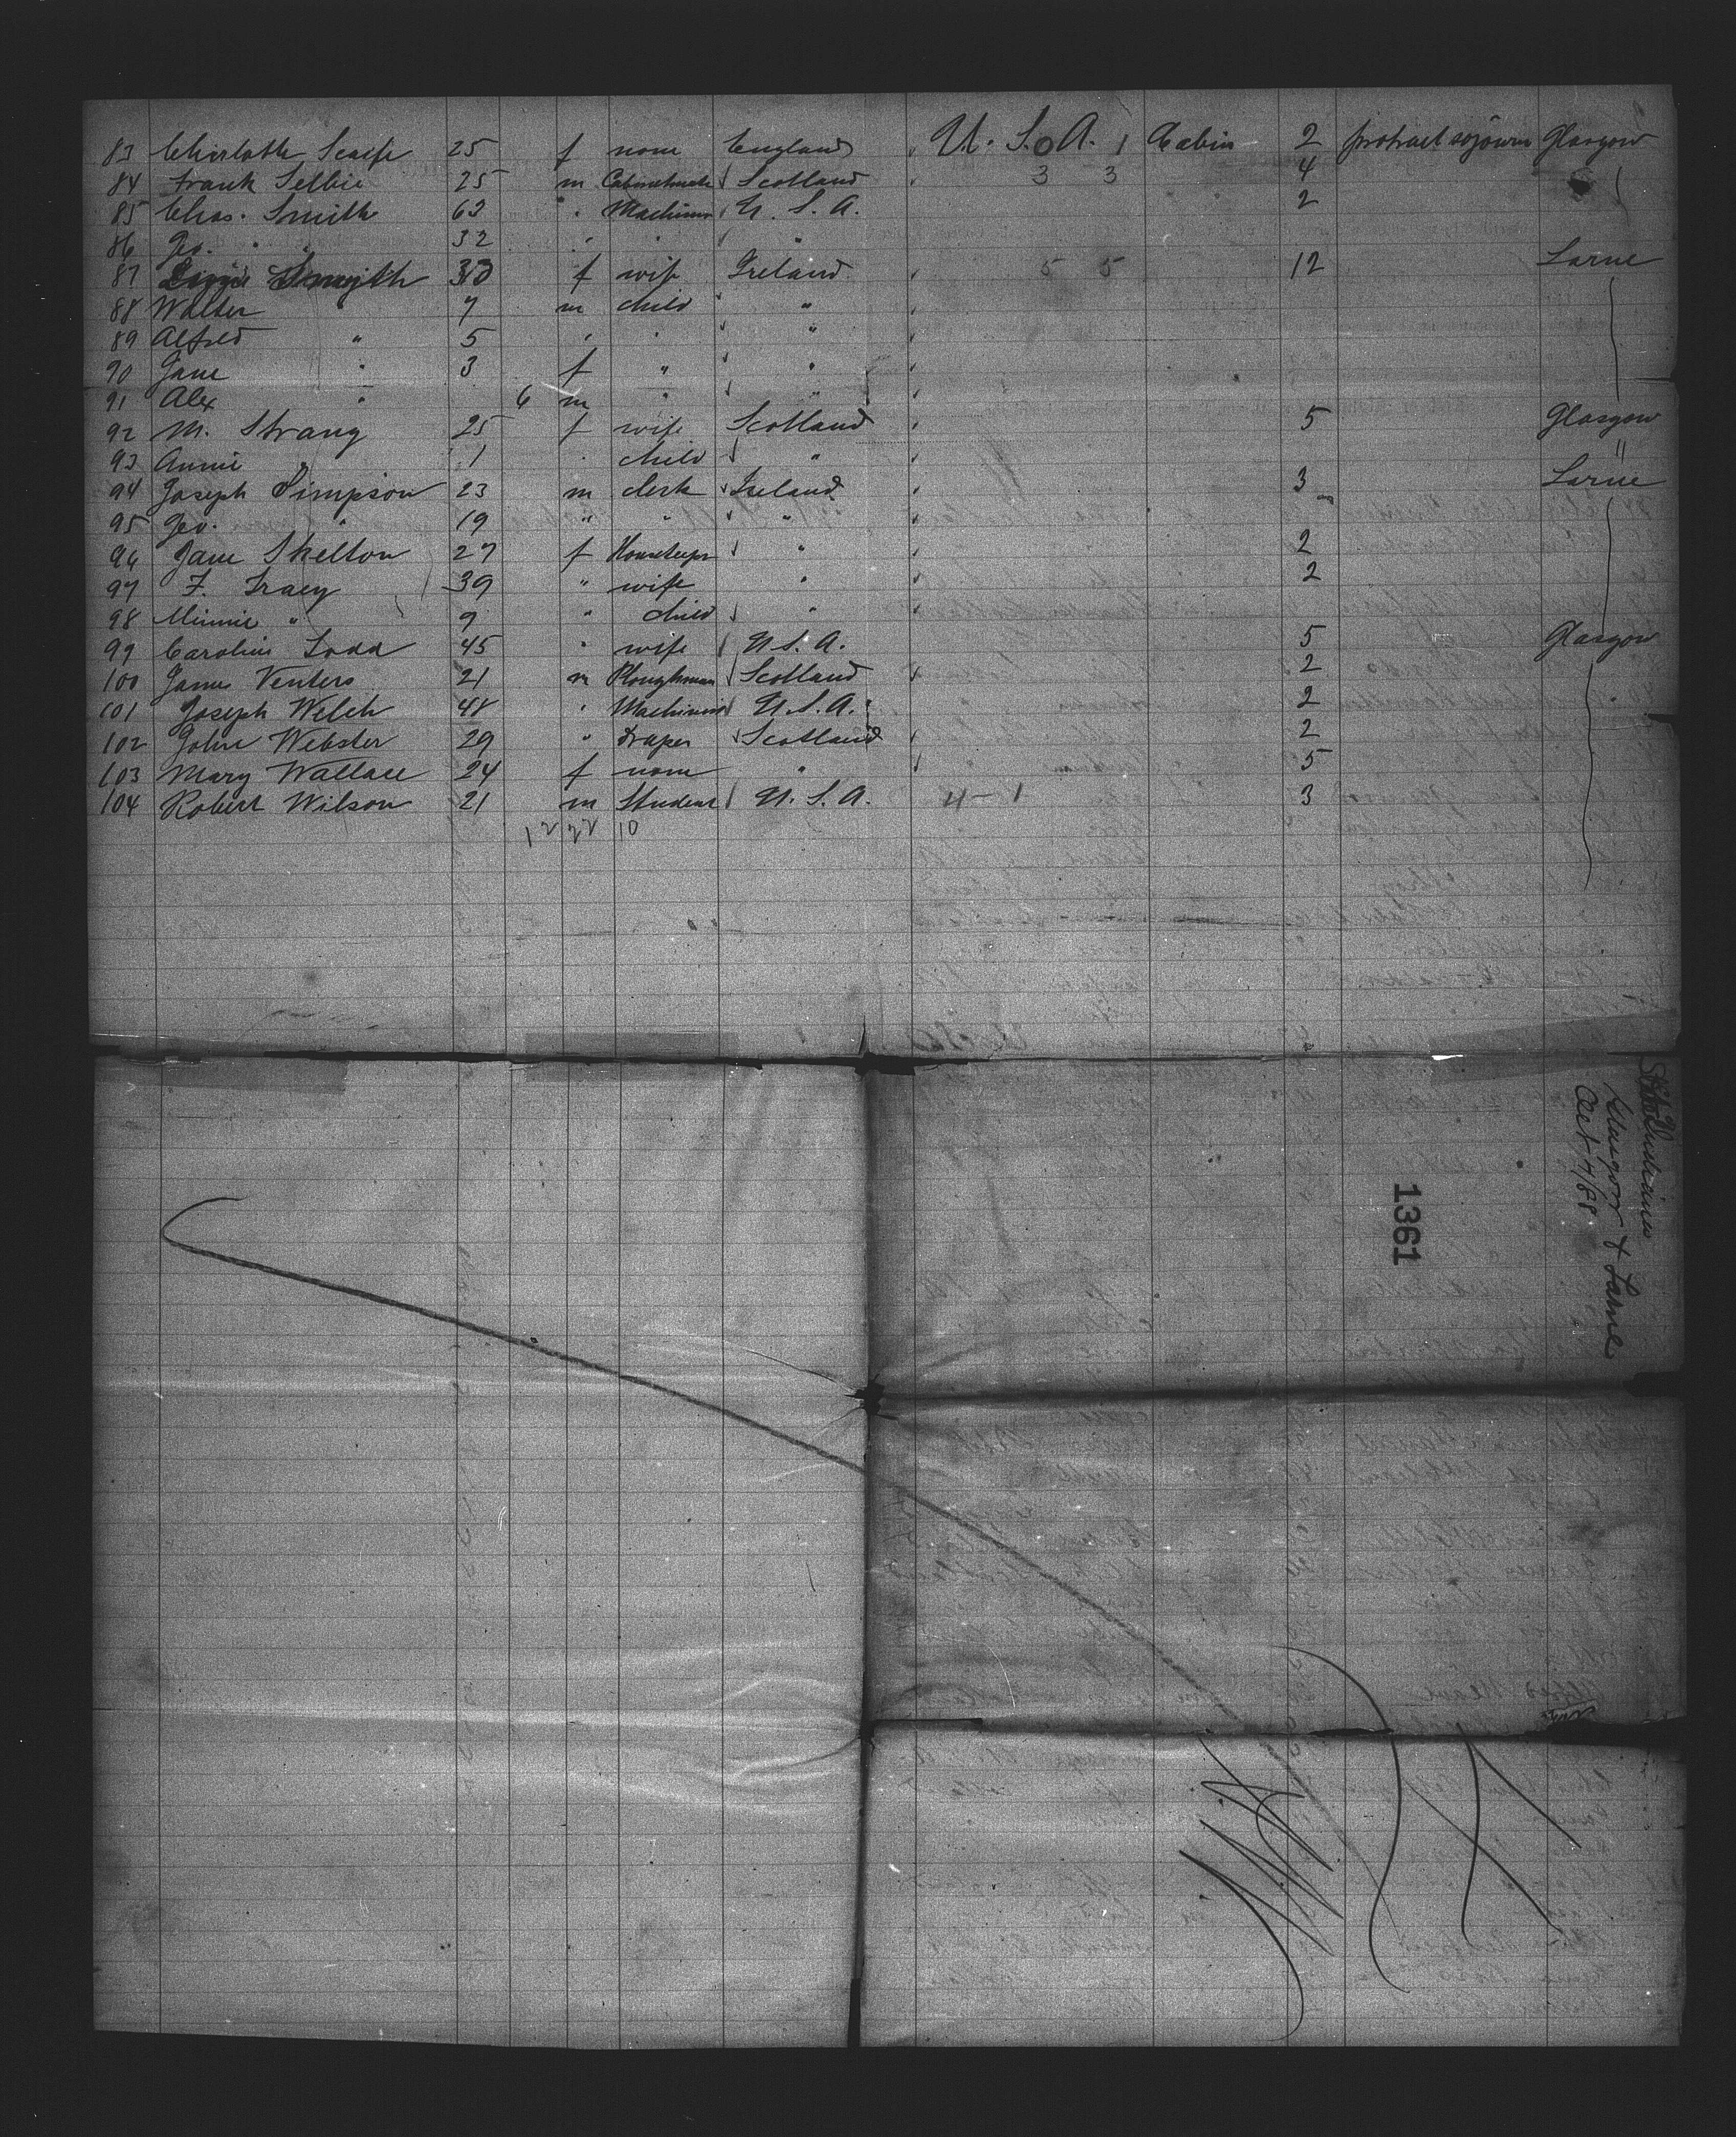 83 Charlotte Scaife 25 f none England U. S. A. 0 1 Cabin 2 protract sojourn Glasgow
84 Frank Selbie 25 m Cabinetmaker Scotland 3 3 4
85 Chas. Smith 63 " Machinist U. S. A. 2
86 Geo. " 32 " " "
87 Lizzie Smyth 30 f wife Ireland 5 5 12 Larne
88 Walter " 7 m child "
89 Alfred " 5 " " "
90 Jane " 3 f " "
91 Alex " 6 m " "
92 M. Strang 25 f wife Scotland 5 Glasgow
93 Annie " 1 " child " "
94 Joseph Simpson 23 m clerk Ireland 3 Larne
95 Geo. " 19 " " "
96 Jane Skelton 27 f Housekeeper " 2
97 F. Tracy 39 " wife " 2
98 Minnie " 9 " child "
99 Caroline Todd 45 " wife U. S. A. 5 Glasgow
100 James Venters 21 m Ploughman Scotland 2
101 Joseph Welch 48 " Machinist U. S. A. 2
102 John Webster 29 " draper Scotland 2
103 Mary Wallace 24 f none " 5
104 Robert Wilson 21 m Student U. S. A. 4 - 1 3
12 22 10
Glasgow & Larne
Oct 4/88
1361